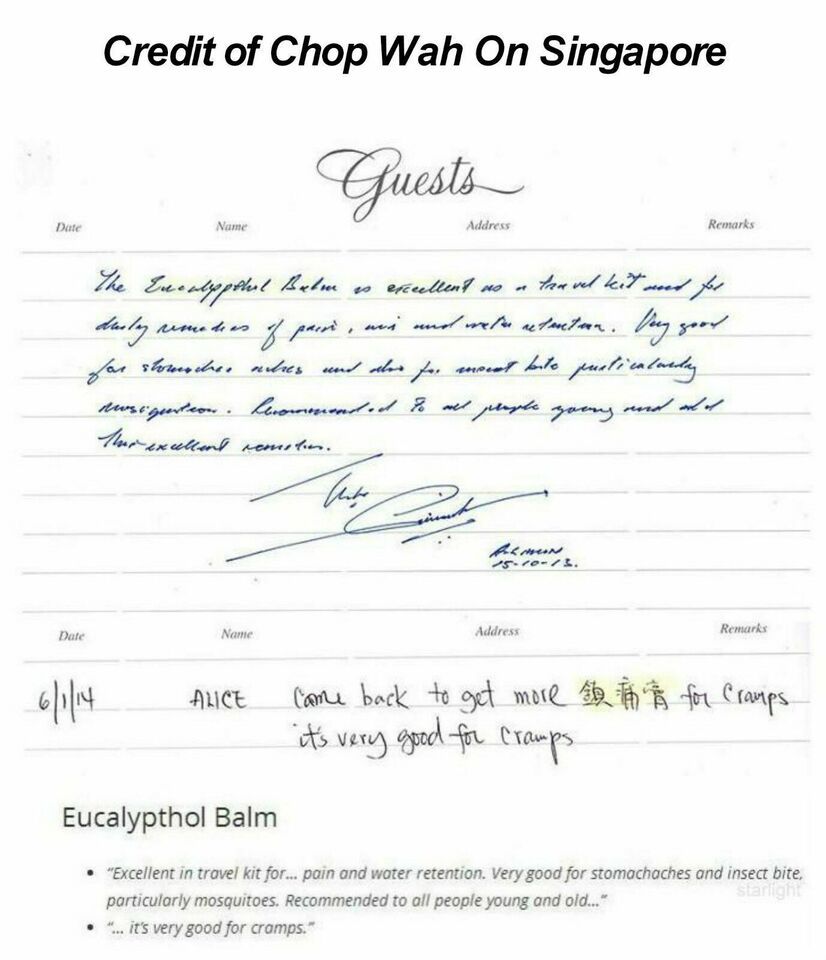 Credit of Chop Wah On Singapore
Guests
Date Name Address Remarks
The Eucalypthol Balm is excellent as a travel kit and for
daily remedies of pain, and water retention. Very good
for stomaches aches and also for insect bite particularly
Recommended to all people young and old
This excellent remedies.
15-10-13.
Date Name Address Remarks
6/1/14 ALICE Came back to get more 鎮痛膏 for Cramps
it's very good for Cramps
Eucalypthol Balm
• “Excellent in travel kit for... pain and water retention. Very good for stomachaches and insect bite,
particularly mosquitoes. Recommended to all people young and old...”
• “... it's very good for cramps.”
starlight